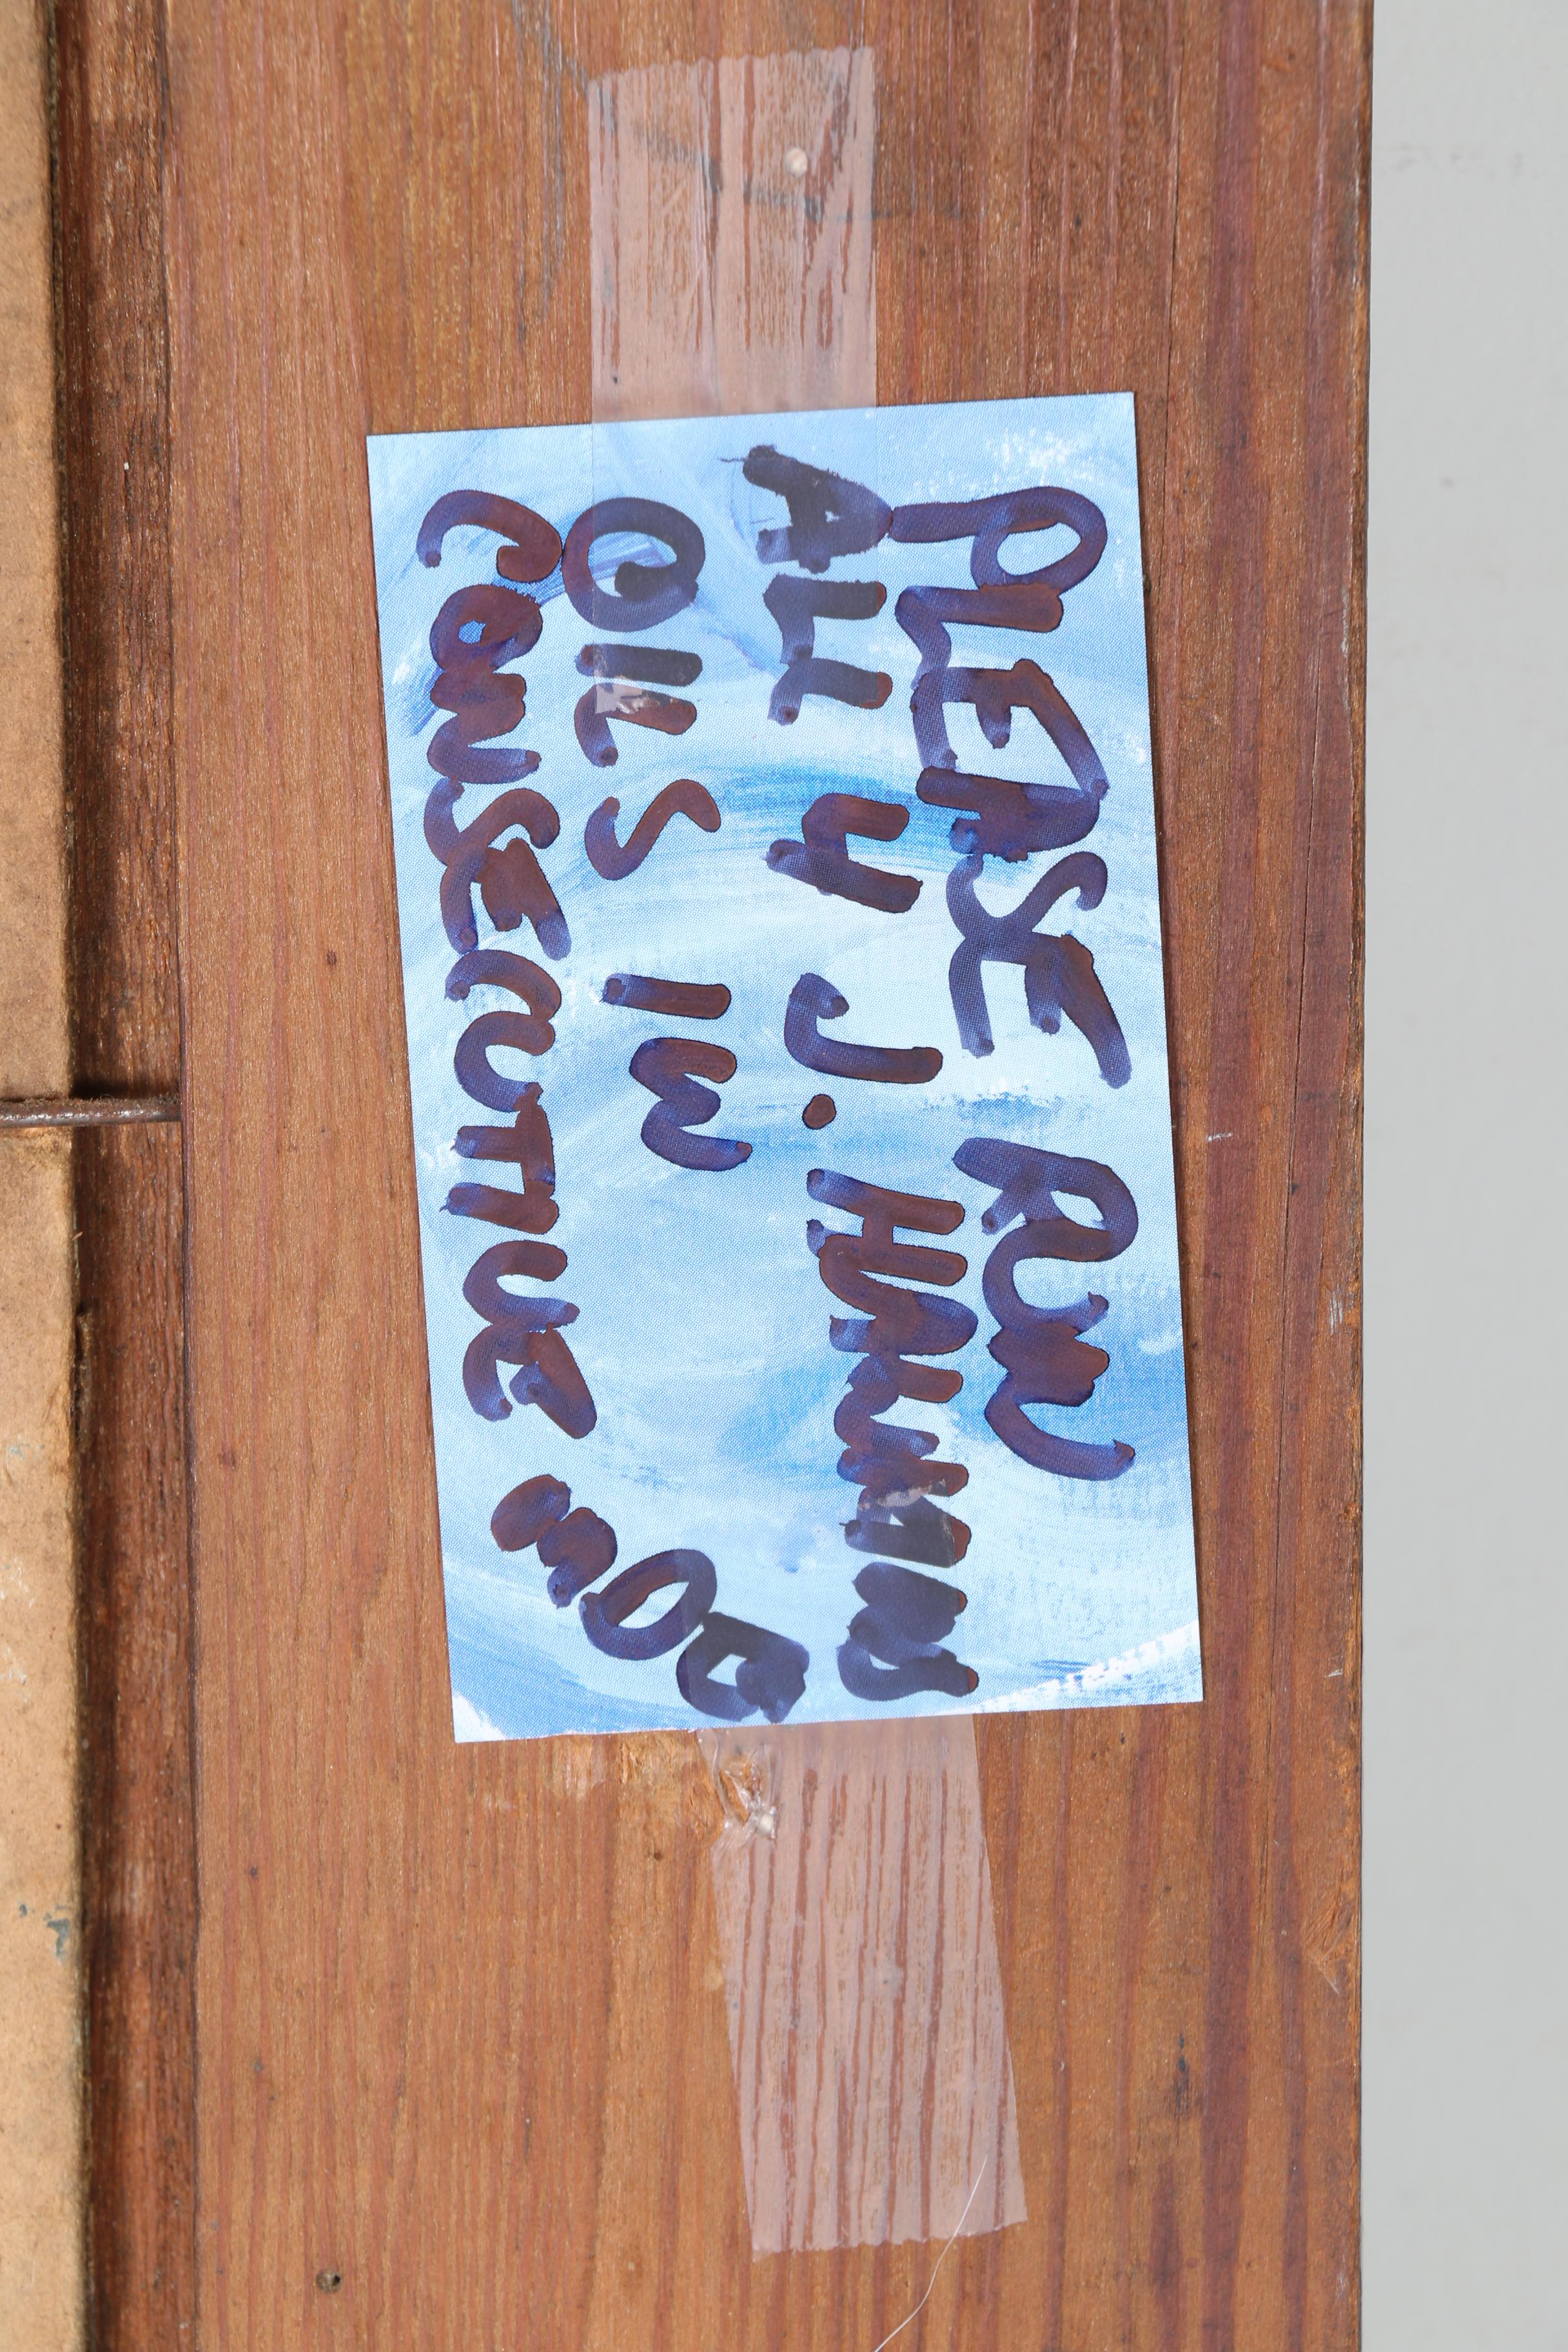 PLEASE RUN
ALL 4 J. HAWKINS
OILS IN
CONSECUTIVE